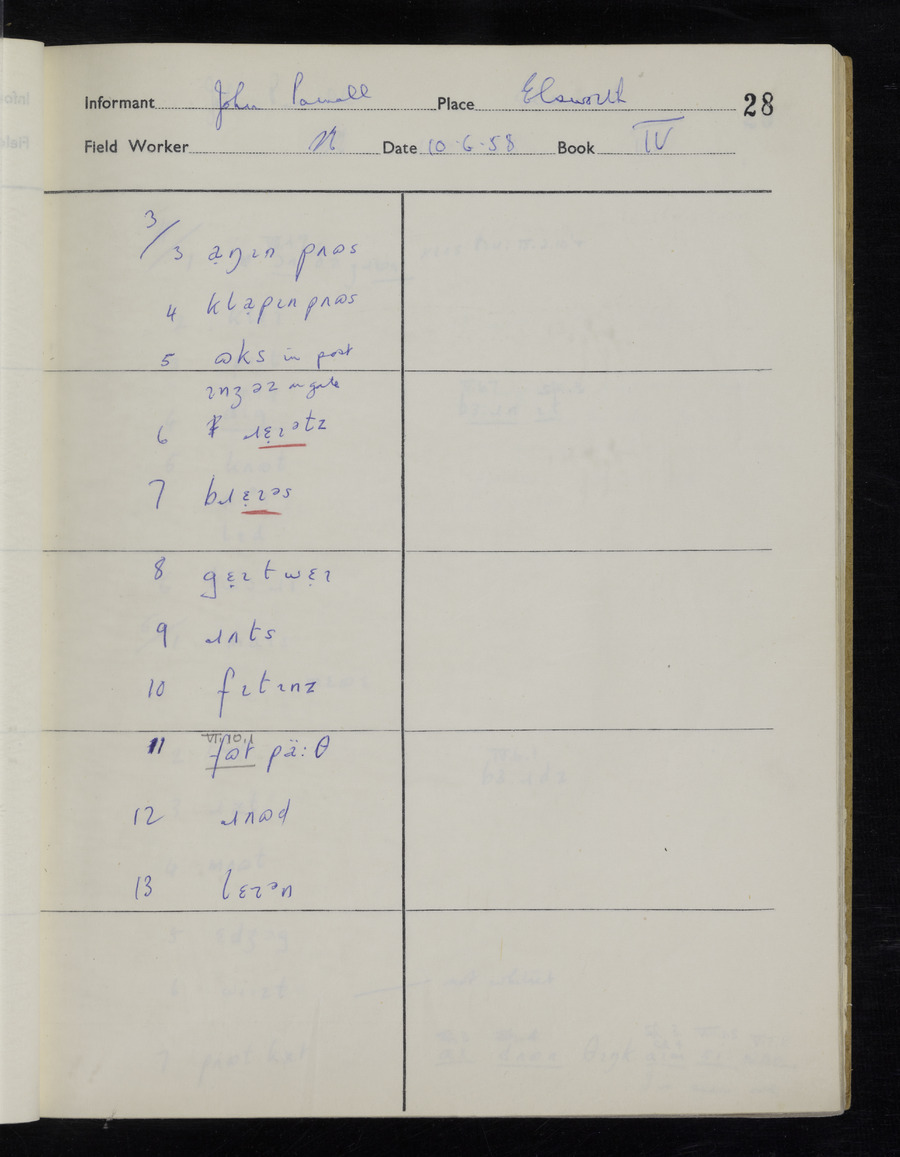 Informant John Place Elsworth 28
Field Worker N Date 10-6-58 Book IV
3/3 a̤ŋɪn pʌəs
4 kla̤pɪnpʌəs
5 ɷks in post
ɪnʒəz in gate
6 ɹɛ̣ɪətz
7 bɹɛ̣ɪəs
8 gɛ̣ɪtwɛ̣ɪ
9 ɹʌts
10 fɪtɪnz
VI/10.1
11 fɷt pä:θ
12 ɹʌɷd
13 lɛɪən